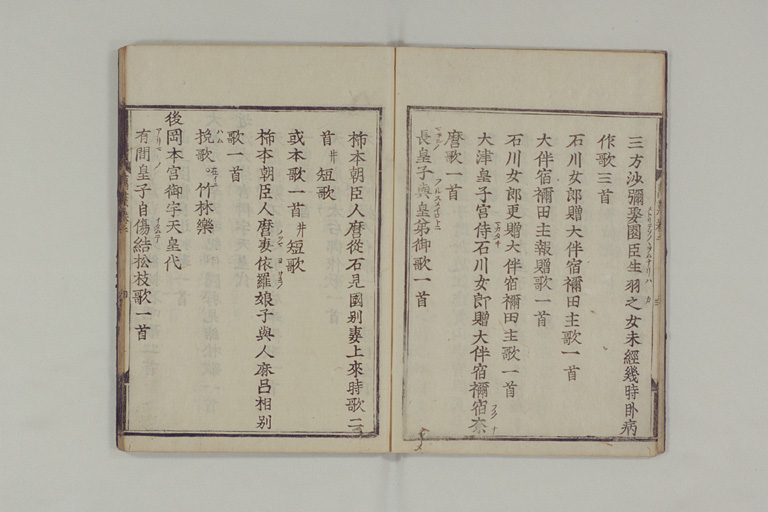 三方沙彌娶園臣生羽之女未經幾時臥病
作歌三首
石川女郎贈大伴宿禰田主歌一首
大伴宿禰田主報贈歌一首
石川女郎更贈大伴宿禰田主歌一首
大津皇子宮侍石川女郎贈大伴宿禰宿奈
麿歌一首
長皇子與皇弟御歌一首
柿本朝臣人麿從石見國別妻上來時歌二
首 井短歌
或本歌一首 井短歌
柿本朝臣人麿妻依羅娘子與人麻呂相別
歌一首
挽歌 竹林樂
後岡本宮御宇天皇代
有間皇子自傷結松枝歌一首